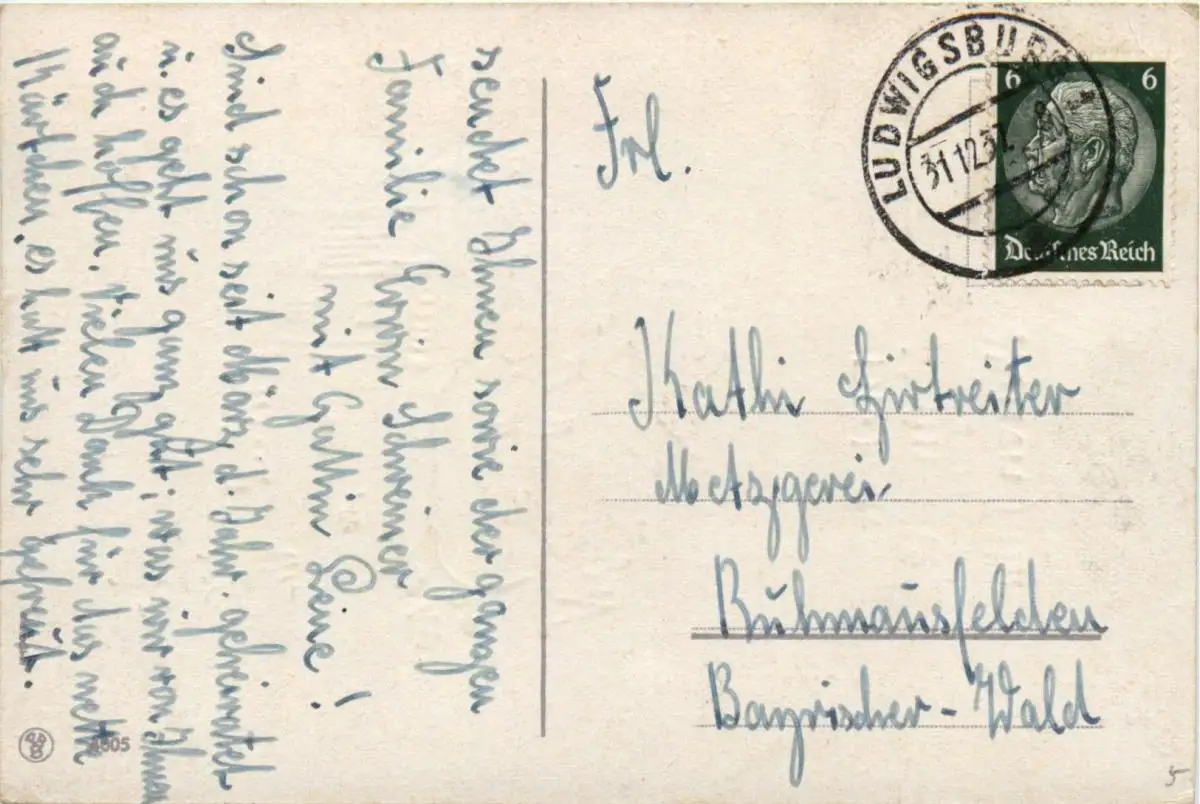 sendet Ihnen sowie der ganzen
Familie Erwin Schreiner
mit Gattin Leine!
Sind schon seit März d. Jahr. geheiratet
u. es geht uns ganz gut; was wir von Ihnen
auch hoffen. Vielen Dank für das nette
Kärtchen, es hatt uns sehr gefreut.
4605
LUDWIGSBURG
31.12.37
6 6
Deutsches Reich
Frl.
Kathi Hirtreiter
Metzgerei
Ruhmansfelden
Bayrischer-Wald
5